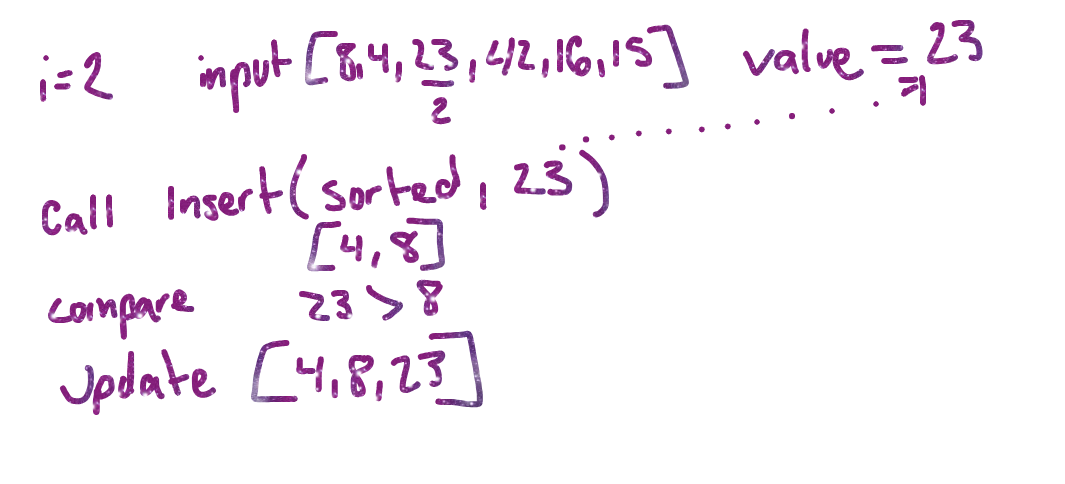 i=2 input [8,4,23,42,16,15] value = 23
2
Call Insert(sorted, 23)
[4,8]
compare 23 > 8
update [4,8,23]